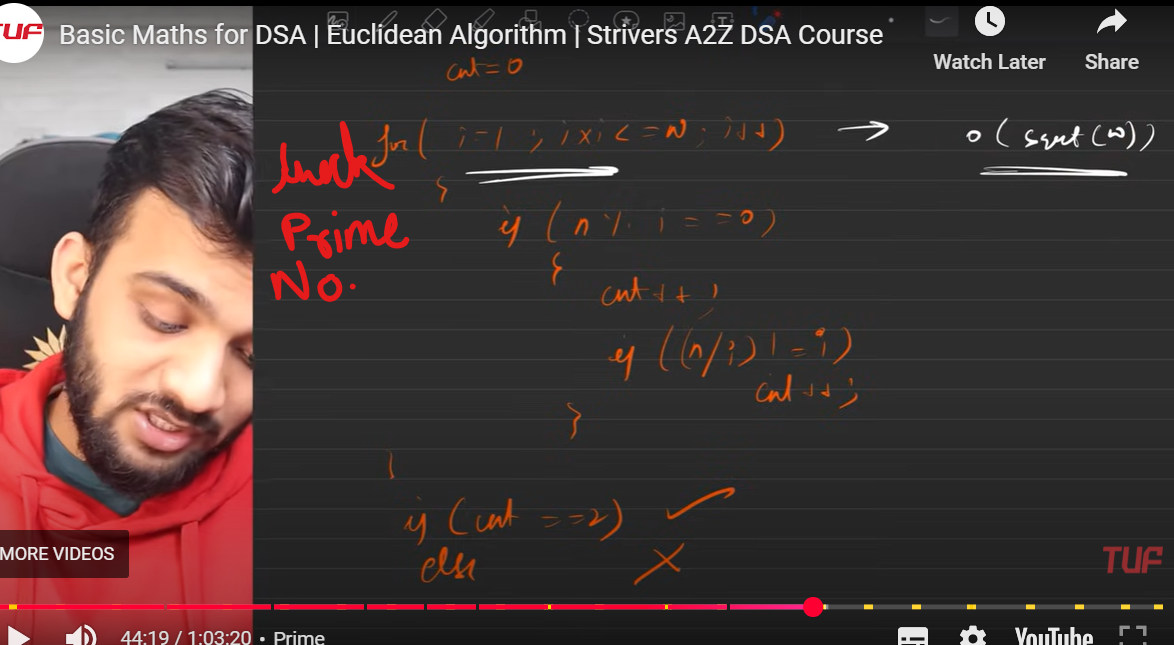 TUF
Basic Maths for DSA | Euclidean Algorithm | Strivers A2Z DSA Course
Watch Later
Share
cnt = 0
for( i=1 ; i×i <= N ; i++) → O( sqrt(N))
{
Prime
No.
if ( n % i == 0)
{
cnt++ ;
if ((n/i) != i)
cnt++;
}
}
if (cnt == 2) ✓
else ✗
MORE VIDEOS
TUF
44:19 / 1:03:20 • Prime
YouTube